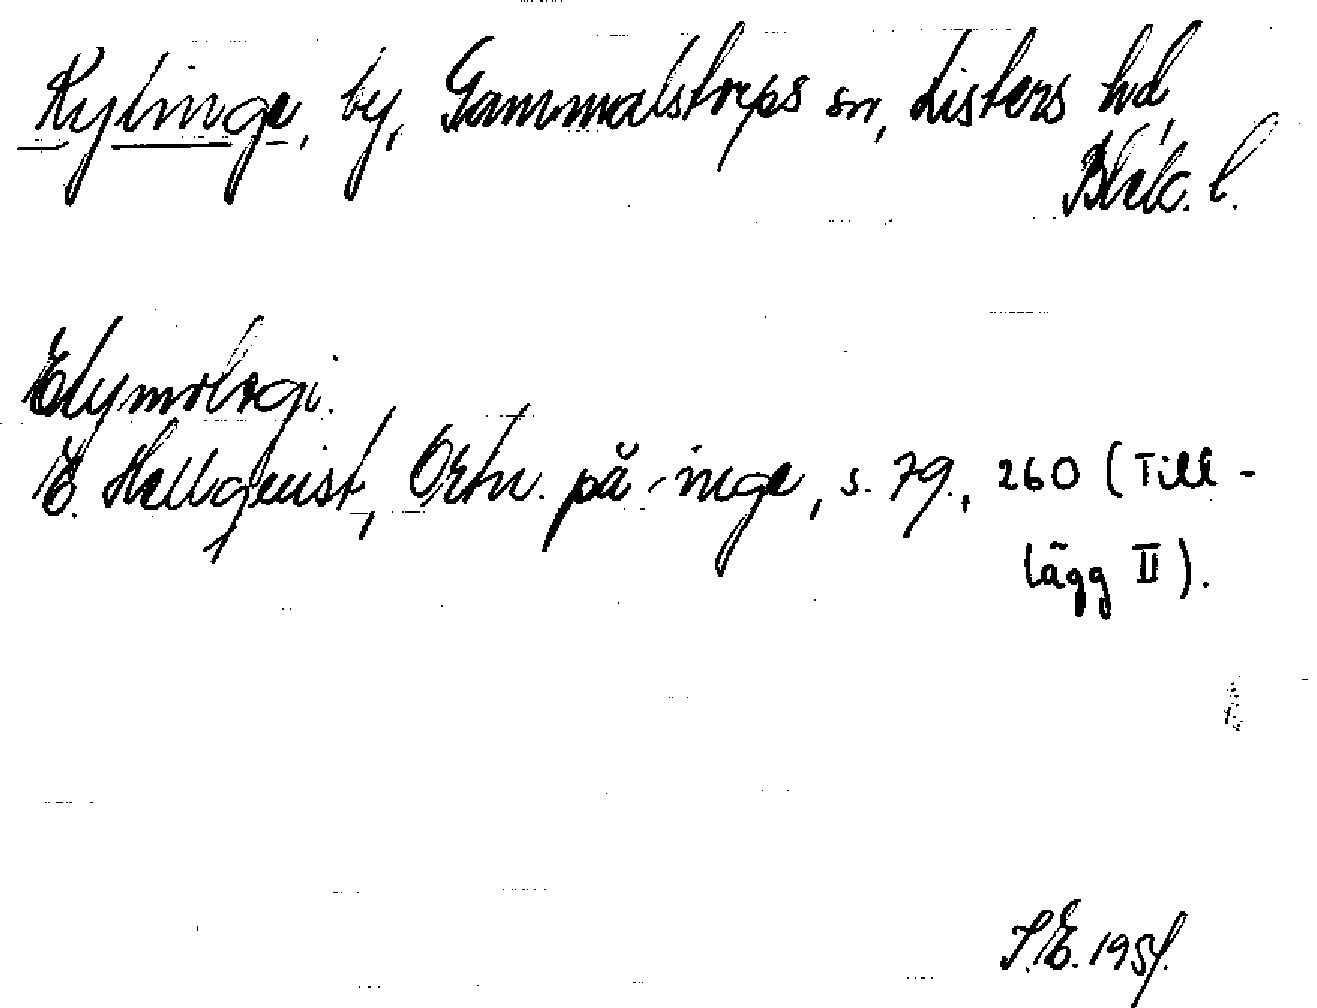 Kylinge, by, Gammalstorps sn, Listers hd,
Blek. l.
Etymologi.
E. Hellquist, Ortn. på -inge, s. 79., 260 (Till-
lägg II).
S.E. 1951.